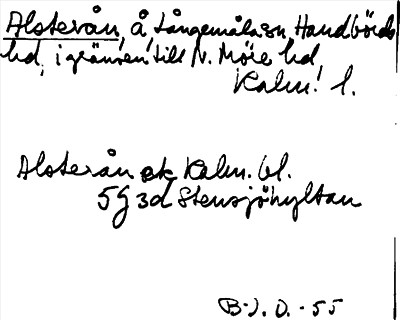 Alsterån, å, Långemåla sn, Handbörds
hd, i gränsen till N. Möre hd
Kalm. l.
Alsterån ek Kalm. bl.
5G 3d Stensjöhyltan
B.J. D. -55